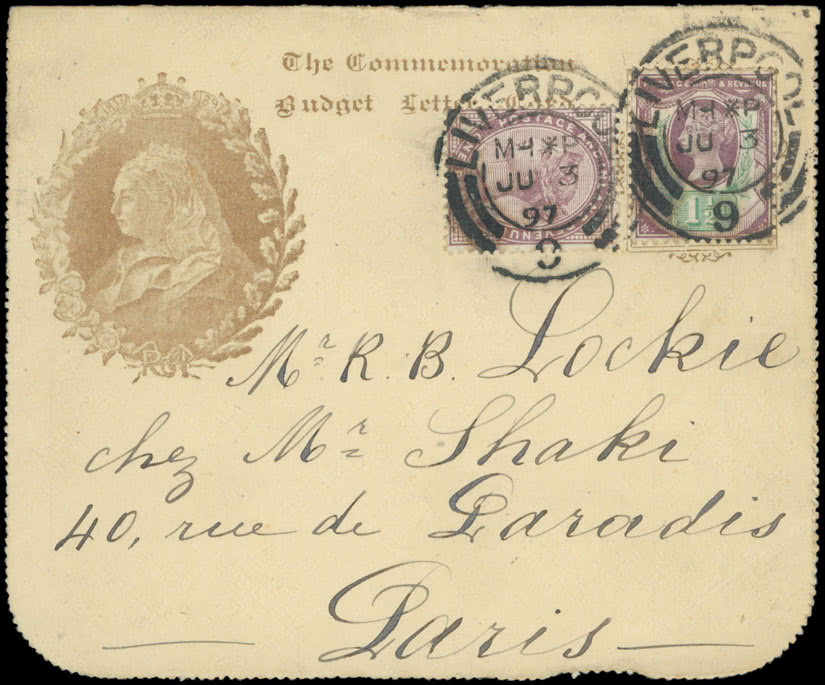 The Commemoration
Budget Letter Card
1837 1897
V R I
LIVERPOOL
M-I*P
JU 3
97
9
POSTAGE AND REVENUE
LIVERPOOL
M-I*P
JU 3
97
9
POSTAGE & REVENUE
1½
Mr R. B. Lockie
chez Mr Shaki
40, rue de Paradis
Paris